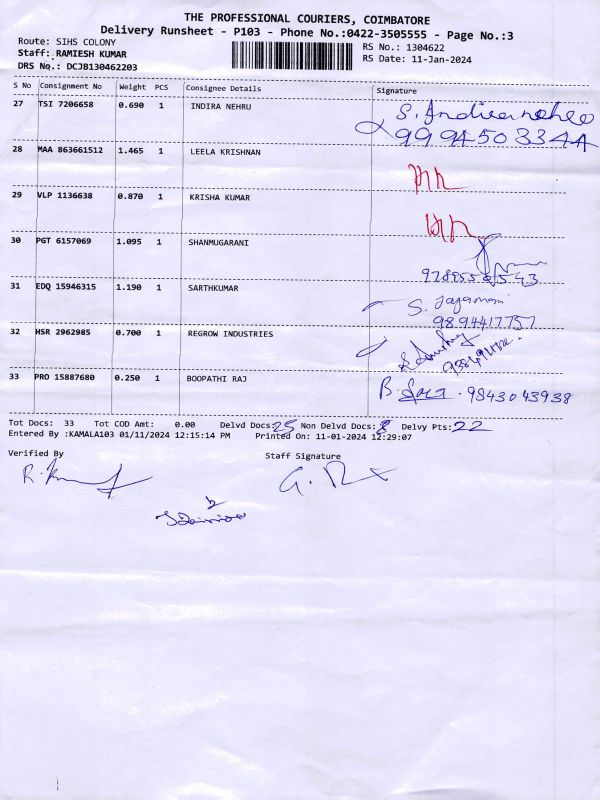 THE PROFESSIONAL COURIERS, COIMBATORE
Delivery Runsheet - P103 - Phone No.:0422-3505555 - Page No.:3
Route: SIHS COLONY RS No.: 1304622
Staff: RAMIESH KUMAR RS Date: 11-Jan-2024
DRS No.: DCJB130462203
S No Consignment No Weight PCS Consignee Details Signature
27 TSI 7206658 0.690 1 INDIRA NEHRU S. Indira nehru
9994503344
28 MAA 863661512 1.465 1 LEELA KRISHNAN
29 VLP 1136638 0.870 1 KRISHA KUMAR
30 PGT 6157069 1.095 1 SHANMUGARANI
31 EDQ 15946315 1.190 1 SARTHKUMAR S. Jayamani
9894417757
32 HSR 2962985 0.700 1 REGROW INDUSTRIES
33 PRO 15887680 0.250 1 BOOPATHI RAJ 9843043938
Tot Docs: 33 Tot COD Amt: 0.00 Delvd Docs: 25 Non Delvd Docs: 8 Delvy Pts: 22
Entered By :KAMALA103 01/11/2024 12:15:14 PM Printed On: 11-01-2024 12:29:07
Verified By Staff Signature